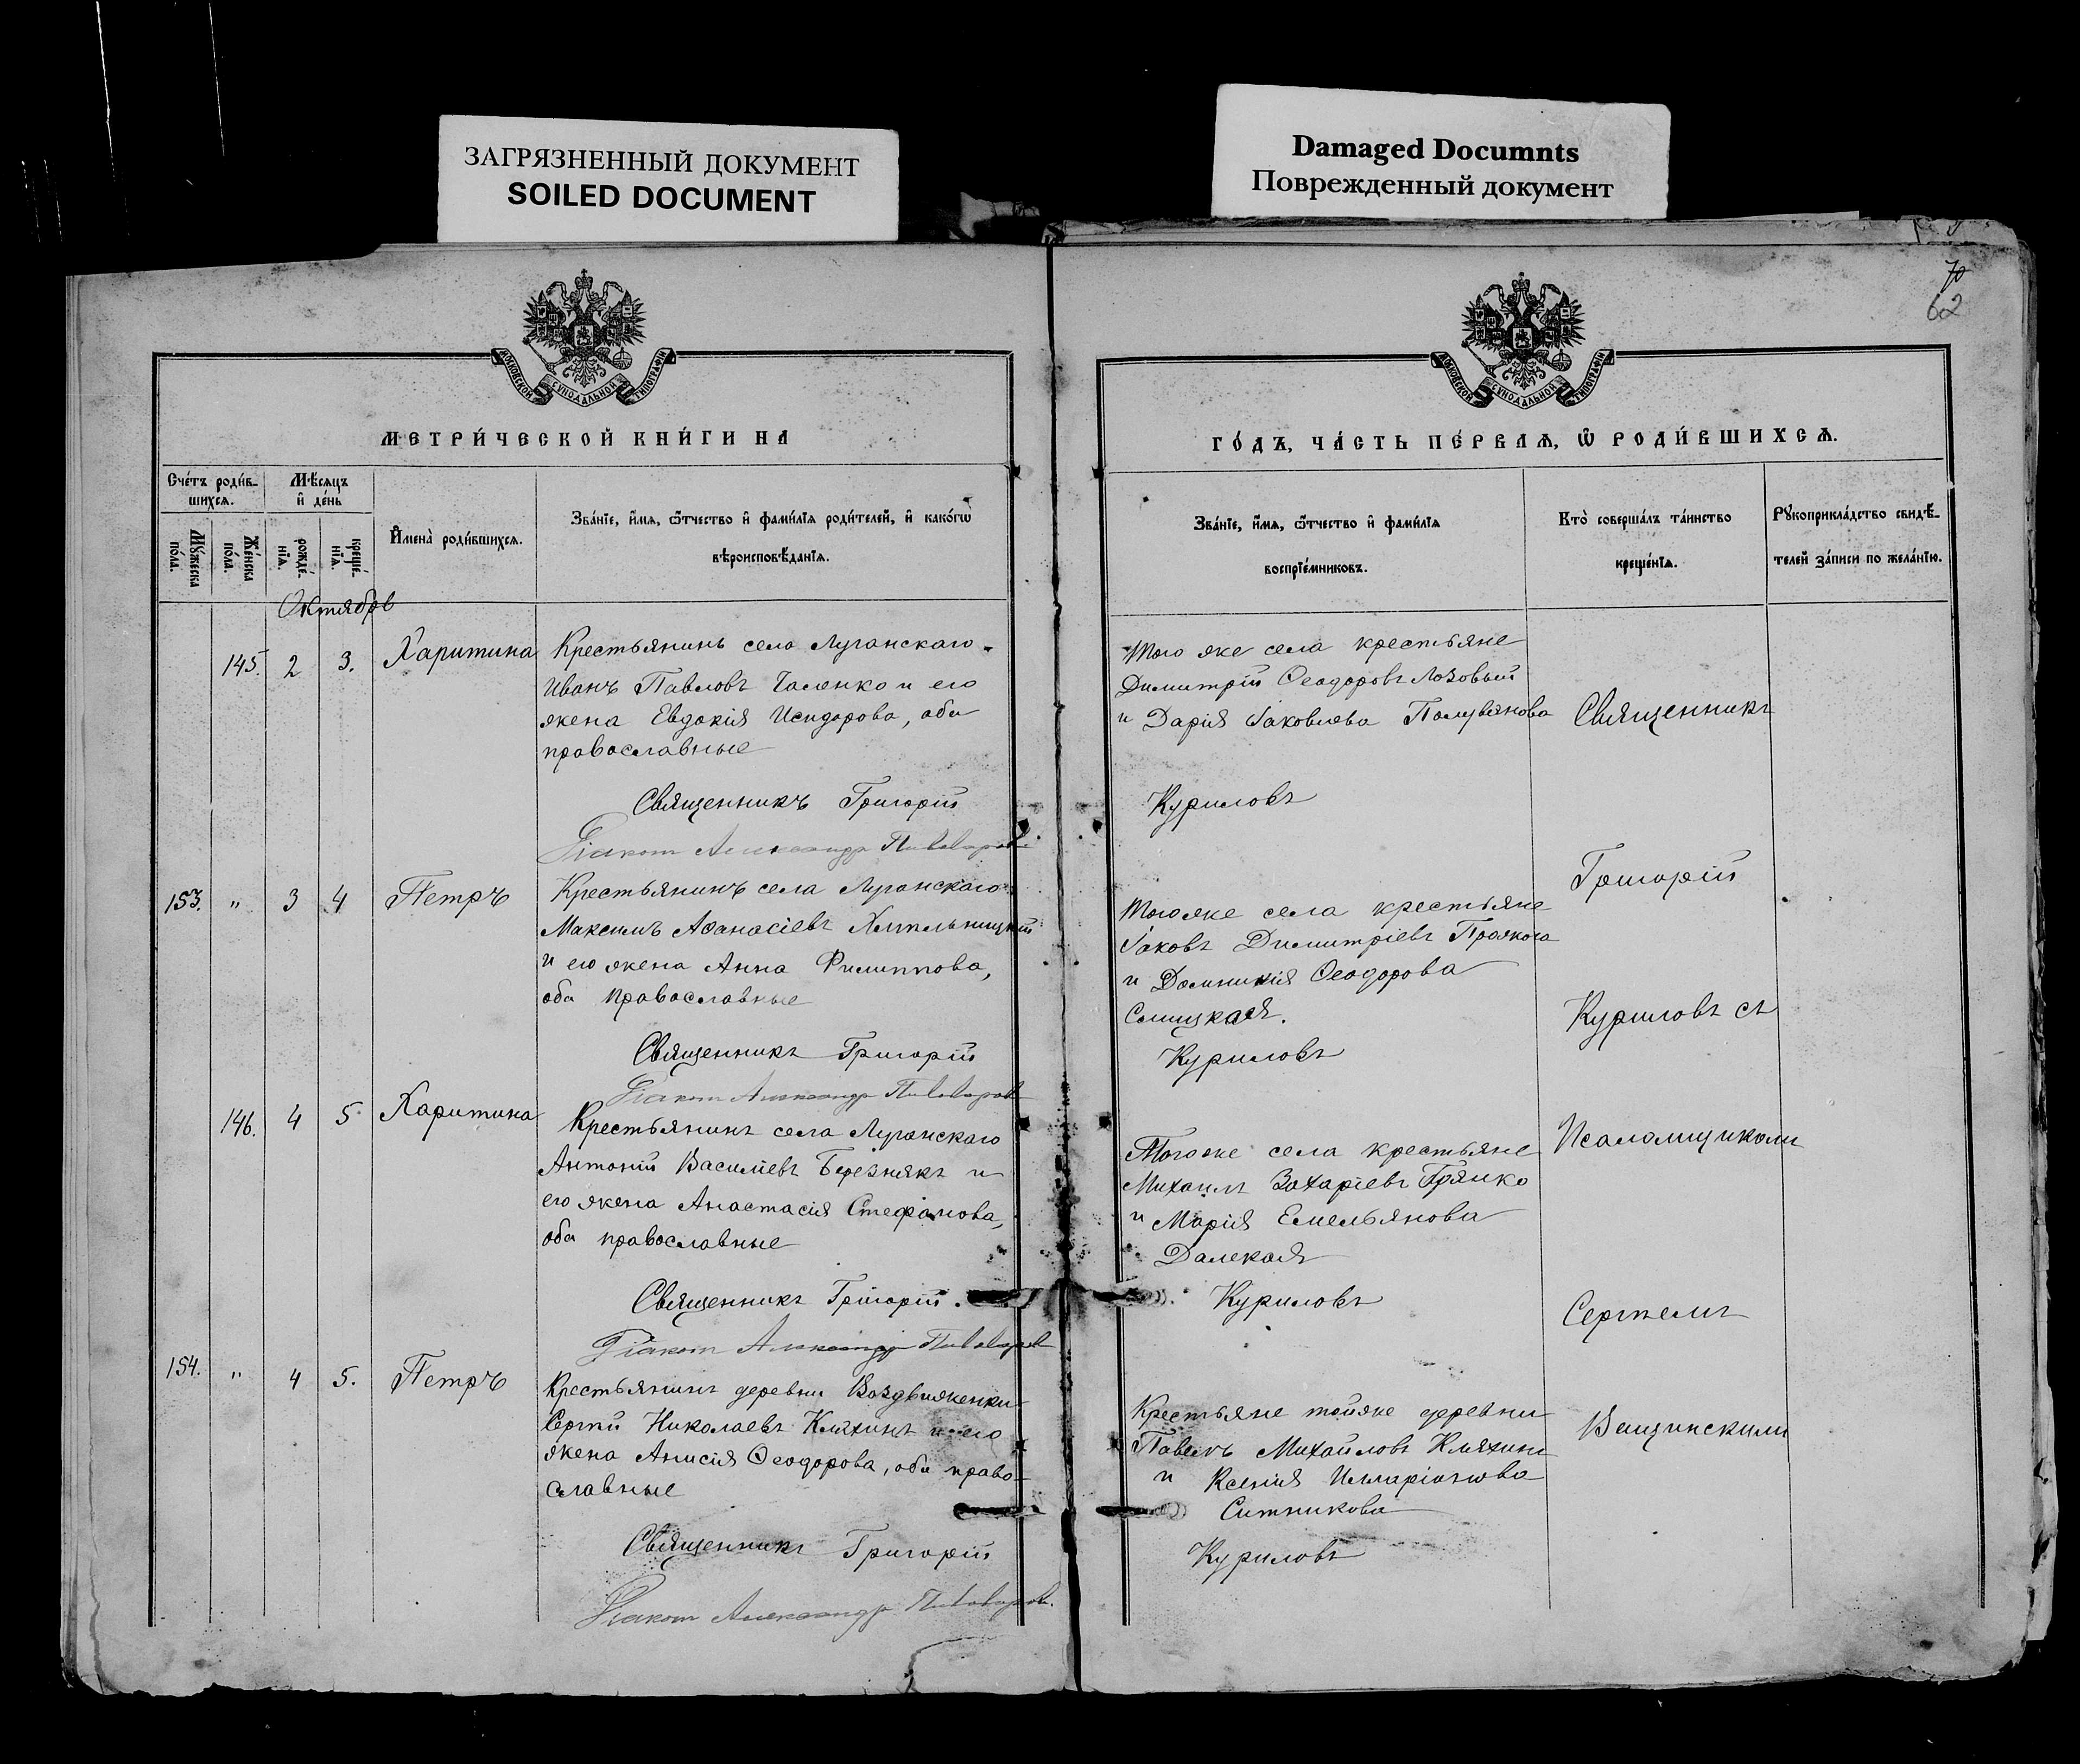 ЗАГРЯЗНЕННЫЙ ДОКУМЕНТ
SOILED DOCUMENT
Damaged Documnts
Поврежденный документ
70
62
МОСКОВСКОЙ СѴНОДАЛЬНОЙ ТИПОГРАФІИ
МОСКОВСКОЙ СѴНОДАЛЬНОЙ ТИПОГРАФІИ
МЕТРИ́ЧЕСКОЙ КНИ́ГИ НА
ГО́ДЪ, ЧА́СТЬ ПЕ́РВАѦ, Ѡ РОДИ́ВШИХСѦ.
Сче́тъ роди́в-
шихсѧ.
Мѣ́сѧцъ
и де́нь
Мꙋ́жеска
по́ла.
Же́нска
по́ла.
рожде́-
нїѧ.
креще́-
нїѧ.
Имена̀ роди́вшихсѧ.
Зва́нїе, и́мѧ, ѻ́тчество и фами́лїѧ роди́телей, и како́гѡ
вѣроисповѣ́данїѧ.
Зва́нїе, и́мѧ, ѻ́тчество и фами́лїѧ
воспрїе́мниковъ.
Кто̀ соверша́лъ та́инство
креще́нїѧ.
Рꙋкоприкла́дство свидѣ́-
телей за́писи по жела́нїю.
Октябрь
145. 2 3. Харитина
Крестьянинъ села Луганскаго
Иванъ Павловъ Галенко и его
жена Евдокія Исидорова, оба
православные
Священникъ Григорій
Діаконъ Александръ Пивоваровъ
Того же села крестьяне
Димитрій Ѳеодоровъ Лозовый
и Дарія Іаковлева Полувянова
Куриловъ
153. " 3 4 Петръ
Крестьянинъ села Луганскаго
Максимъ Аѳанасіевъ Хмельницкій
и его жена Анна Филиппова,
оба православные
Священникъ Григорій
Діаконъ Александръ Пивоваровъ
Того же села крестьяне
Іаковъ Димитріевъ
и Домникія Ѳеодорова
Куриловъ
146. 4 5 Харитина
Крестьянинъ села Луганскаго
Антоній Василіевъ Березнякъ и
его жена Анастасія Стефанова,
оба православные
Священникъ Григорій
Діаконъ Александръ Пивоваровъ
Того же села крестьяне
Михаилъ Захаріевъ
и Марія Емельянова
Далекая
Куриловъ
154. " 4 5. Петръ
Крестьянинъ деревни Воздвиженки
Сергій Николаевъ Кляхинъ и его
жена Анисія Ѳеодорова, оба право-
славные
Священникъ Григорій
Діаконъ Александръ Пивоваровъ.
Крестьяне тойже деревни
Павелъ Михайловъ Кляхинъ
и Ксенія Илларіонова
Ситникова
Куриловъ
Священникъ
Григорій
Куриловъ съ
Псаломщикомъ
Сергіемъ
Вещинскимъ